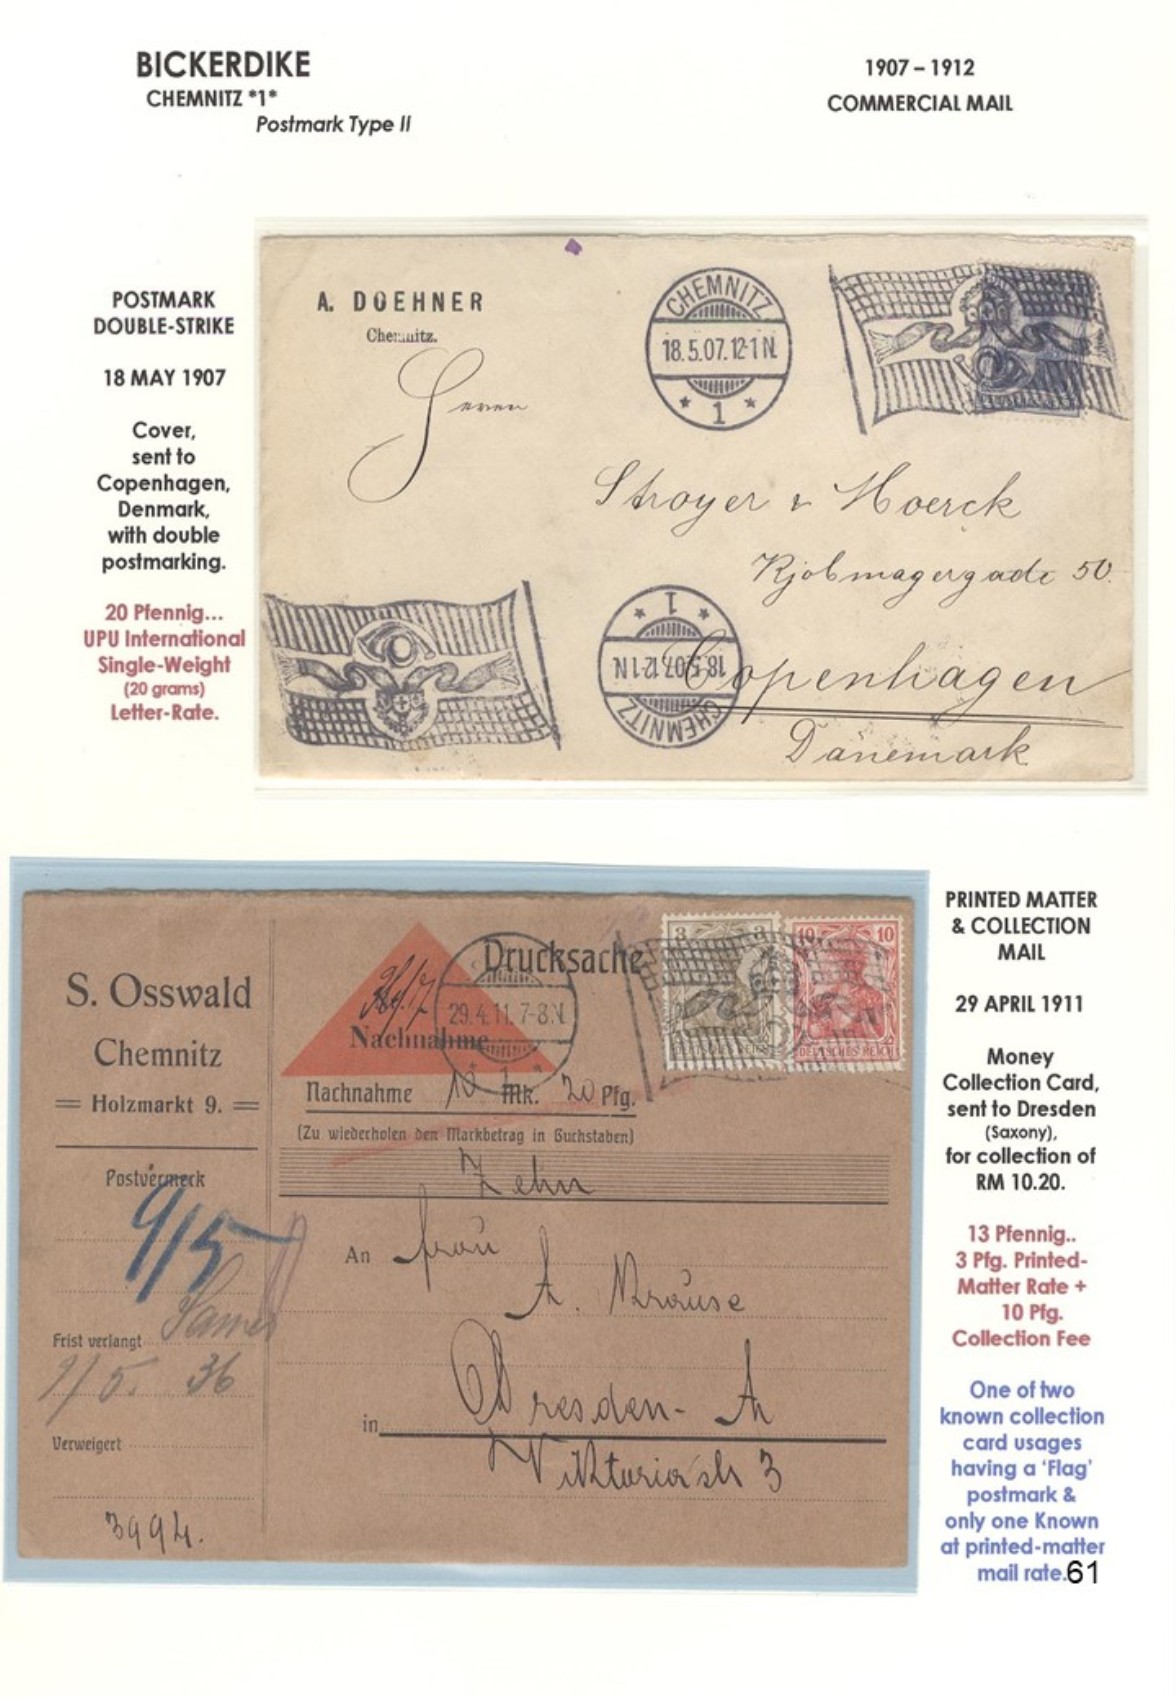 BICKERDIKE
CHEMNITZ *1*
Postmark Type II
1907 – 1912
COMMERCIAL MAIL
POSTMARK
DOUBLE-STRIKE
18 MAY 1907
Cover,
sent to
Copenhagen,
Denmark,
with double
postmarking.
20 Pfennig...
UPU International
Single-Weight
(20 grams)
Letter-Rate.
A. DOEHNER
Chemnitz.
Herren
CHEMNITZ
18.5.07.12-1N.
* 1 *
Stroyer & Hoerck
Kjobmagergade 50.
Copenhagen
Dänemark
CHEMNITZ
18.5.07.12-1N
* 1 *
PRINTED MATTER
& COLLECTION
MAIL
29 APRIL 1911
Money
Collection Card,
sent to Dresden
(Saxony),
for collection of
RM 10.20.
13 Pfennig..
3 Pfg. Printed-
Matter Rate +
10 Pfg.
Collection Fee
One of two
known collection
card usages
having a ‘Flag’
postmark &
only one Known
at printed-matter
mail rate.
61
S. Osswald
Chemnitz
Holzmarkt 9.
Postvermerk
9/5
Frist verlangt
9/5. 36
Verweigert
3994.
Drucksache
29.4.11.7-8N
Nachnahme
Nachnahme 10 Mk. 20 Pfg.
(Zu wiederholen den Markbetrag in Buchstaben)
Zehn
An Frau
A. Krause
in Dresden- A
Viktoriastr 3
3 3
DEUTSCHES REICH
10 10
DEUTSCHES REICH